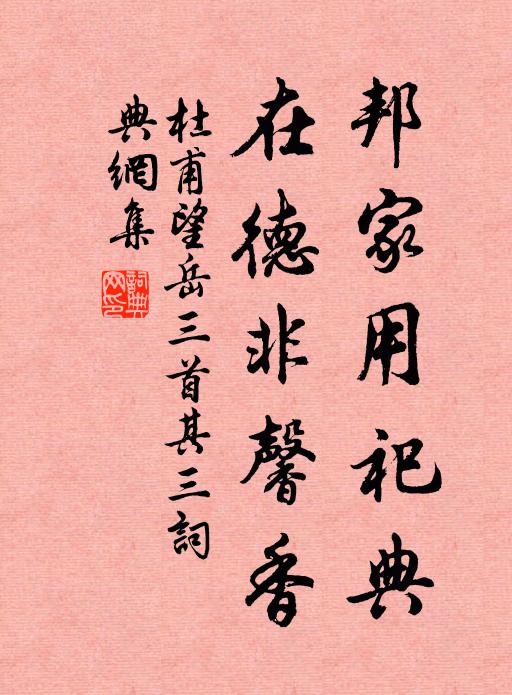 邦家用祀典
在德非馨香
杜甫望岳三首其三詞
典網集
詞典
网印